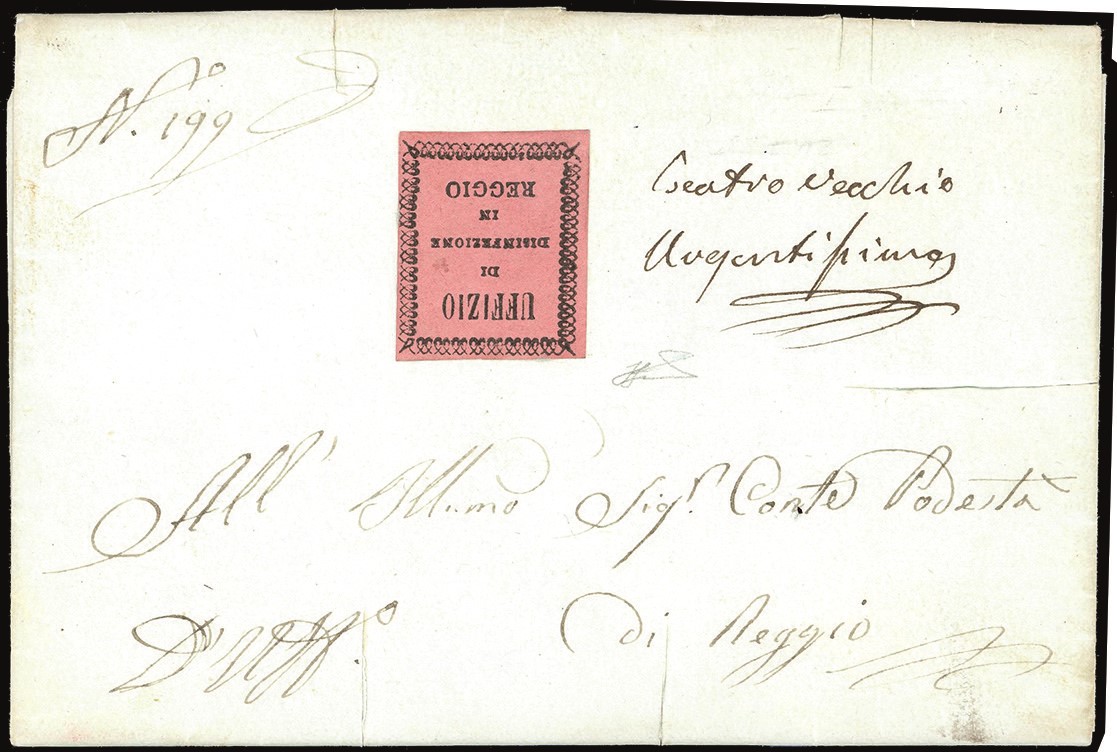 N.º 199
UFFIZIO
DI
DISINFEZIONE
IN
REGGIO
Teatro Vecchio
Urgentissima
All' Illmo Sigr. Conte Podestà
D'Uff.º di Reggio